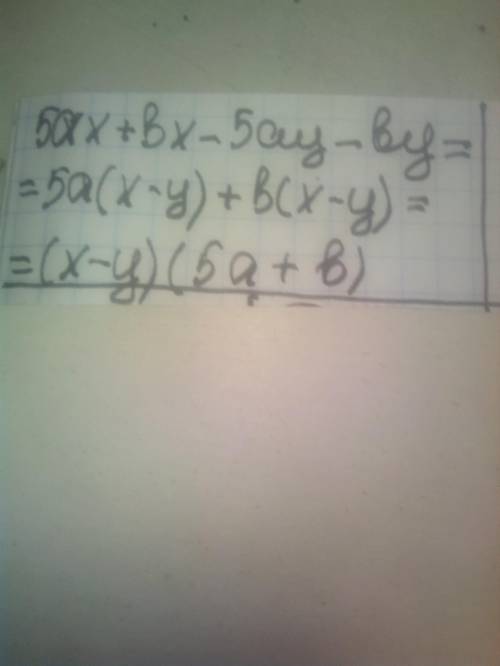 5ax + bx - 5ay - by =
= 5a(x - y) + b(x - y) =
= (x - y)(5a + b)